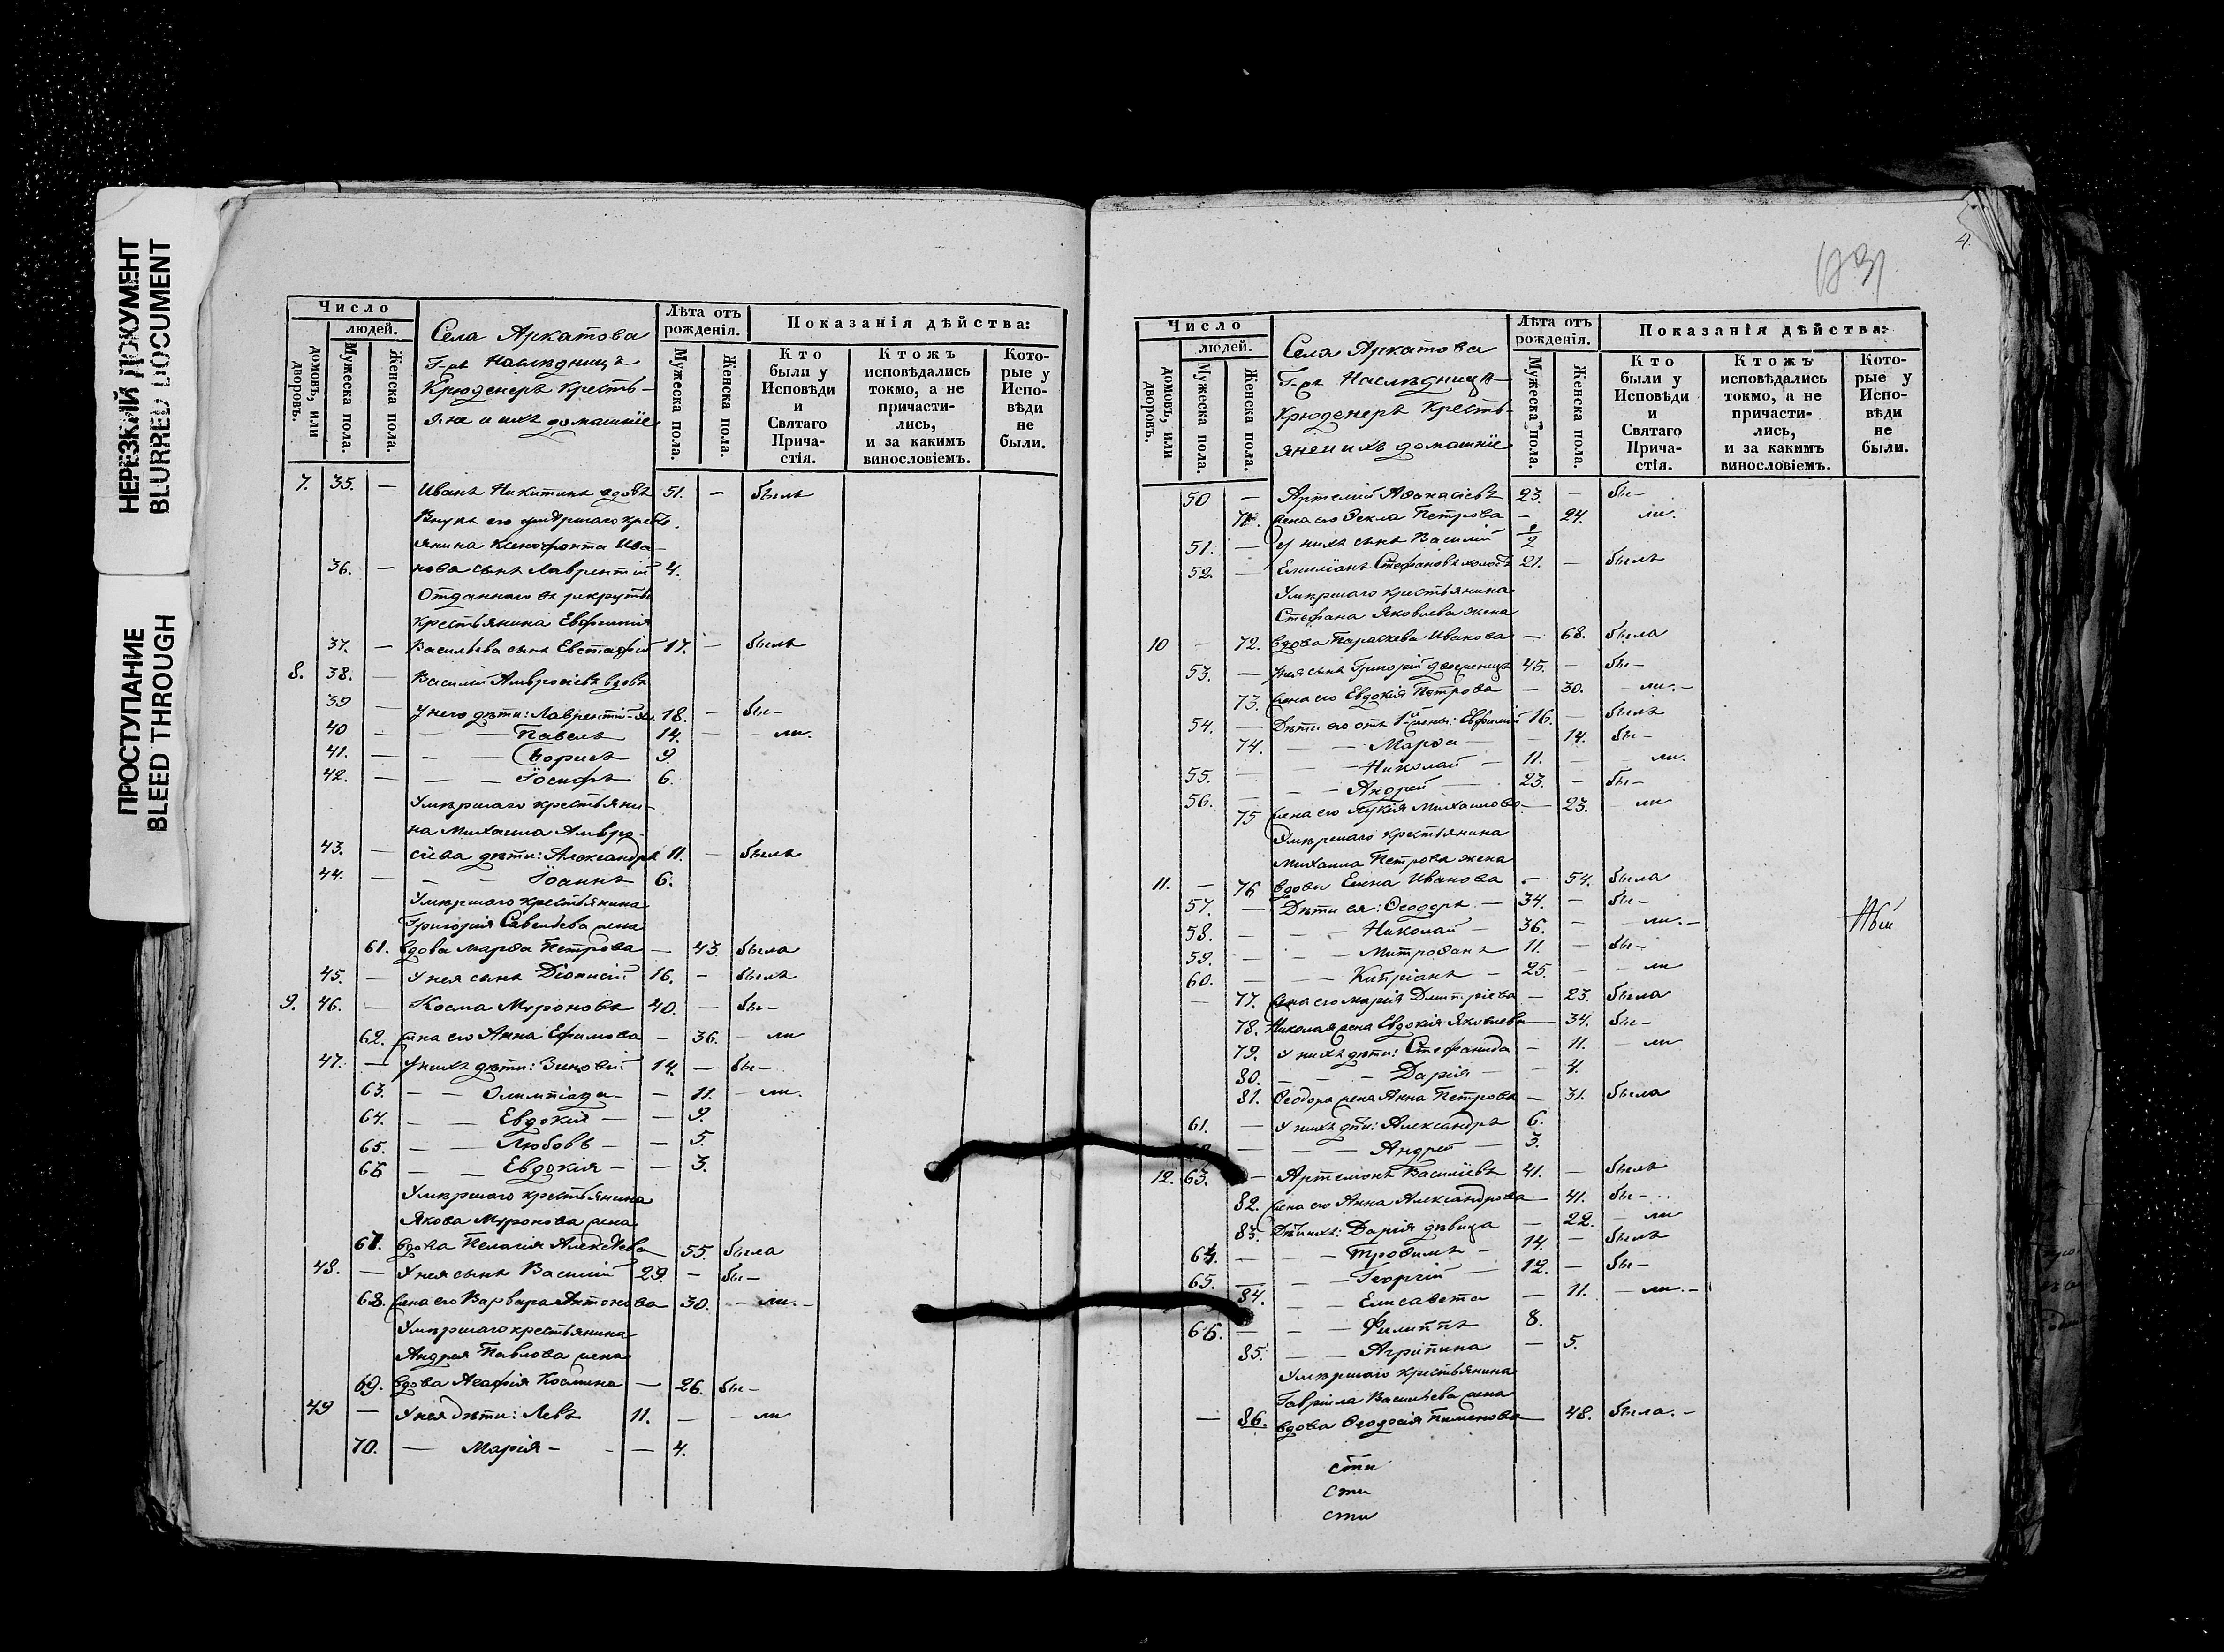 НЕРЕЗКИЙ ДОКУМЕНТ
BLURRED DOCUMENT
ПРОСТУПАНИЕ
BLEED THROUGH
Число
людей.
домовъ, или дворовъ.
Мужеска пола.
Женска пола.
Села Аркатова
Г-жъ Наслѣдницъ
Крюденеръ кресть-
яне и ихъ домашніе
Лѣта отъ рожденія.
Мужеска пола.
Женска пола.
Показанія дѣйства:
Кто были у Исповѣди и Святаго Прича- стія.
Ктожъ исповѣдались токмо, а не причасти- лись, и за какимъ винословіемъ.
Кото- рые у Испо- вѣди не были.
7. 35. — Иванъ Никитинъ вдовъ 51. — былъ
Внукъ его умершаго кресть
янина Ксенофонта Ива-
36. — нова сынъ Лаврентій 4.
Отданнаго въ рекруты
крестьянина Евфимія
37. — Васильева сынъ Евстафій 17. — былъ
8. 38. — Василій Амвросіевъ вдовъ
39 — У него дѣти: Лаврентій 18. — бы-
40 — — Павелъ 14. — ли.
41. — — — Борисъ 9.
42. — — — Іосифъ 6.
Умершаго крестьяни-
на Михаила Амвро-
43. — сіева дѣти: Александръ 11. — былъ
44. — — — Іоаннъ 6.
Умершаго крестьянина
Григорія Савельева жена
61. вдова Марѳа Петрова — 43. была
45. — У нея сынъ Діонисій 16. — былъ
9. 46. — Косма Мѵроновъ 40. — бы-
62. жена его Анна Ефимова — 36. — ли
47. — У нихъ дѣти: Зиновій 14. — бы-
63. — — Олимпіада — — 11. — ли.
64. — — Евдокія — — 9.
65. — — Любовь — — 5.
66 — — Евдокія — — 3.
Умершаго крестьянина
Якова Мѵронова жена
67. вдова Пелагія Алексѣева 55. была
48. — У нея сынъ Василій 29. — бы-
68. жена его Варвара Антонова 30. — ли. —
Умершаго крестьянина
Андрея Павлова жена
69. вдова Агафія Космина — 26. бы-
49 — У нея дѣти: Левъ 11. — — ли
70. — Марія — — — 4.
4.
Число
людей.
домовъ, или дворовъ.
Мужеска пола.
Женска пола.
Села Аркатова
Г-жъ Наслѣдницъ
Крюденеръ кресть-
яне и ихъ домашніе
Лѣта отъ рожденія.
Мужеска пола.
Женска пола.
Показанія дѣйства:
Кто были у Исповѣди и Святаго Прича- стія.
Ктожъ исповѣдались токмо, а не причасти- лись, и за какимъ винословіемъ.
Кото- рые у Испо- вѣди не были.
50 — Артемій Аѳанасіевъ 23. — бы-
71. жена его Ѳекла Петрова — 24. ли.
51. — У нихъ сынъ Василій 1/2
52. — Емиліанъ Стефановъ холостъ 21. — былъ
Умершаго крестьянина
Стефана Яковлева жена
10 — 72. вдова Параскева Иванова — 68. была
53. — У нея сынъ Григорій двоеженецъ 45. — бы-
73. жена его Евдокія Петрова — 30. — ли. —
54. — Дѣти его отъ 1й жены: Евфимій 16. — былъ
74. — — Марѳа — — 14. бы-
55. — — — Николай — 11. — ли.
56. — — — Андрей — 23. — бы-
75 жена его Гликія Михаилова — 23. ли
Умершаго крестьянина
Михаила Петрова жена
11. — 76 вдова Елена Иванова — 54. была
57. — Дѣти ея: Ѳеодоръ — 34. — бы-
58. — — — Николай — 36. — ли. —
59. — — — Митрофанъ 11. — бы-
60. — — — Кипріанъ — 25. — — ли
— 77. жена его Марія Димитріева — 23. была
78. Николая жена Евдокія Яковлева — 34. бы-
79. У нихъ дѣти: Стефанида — 11. — ли
80. — — — Дарія — — 4.
81. Ѳеодора жена Анна Петрова — 31. была
61. — У нихъ дѣти: Александръ 6.
— — — Андрей — 3.
12. 63. — Артемонъ Василіевъ 41. — былъ
82. жена его Анна Александрова — 41. бы-
83. Дѣти ихъ: Дарія дѣвица — 22. — ли
64. — — — Трофимъ — 14. — былъ
65. — — — Георгій — 12. — бы-
84. — — Елисавета — 11. — ли. —
66. — — — Филиппъ 8.
85. — — Агрипина — 5.
Умершаго крестьянина
Гавріила Васильева жена
— 86. вдова Ѳеодосія Пименова — 48. была. —
сти
сти
сти